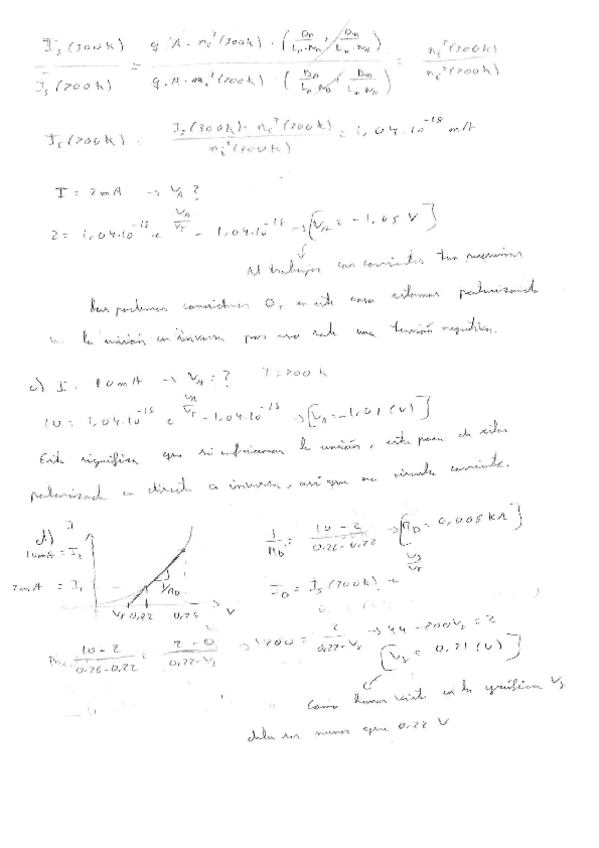 I_s(300k) / I_s(200k) = q·A·n_i²(300k)·(D_n/L_n·N_A + D_n/L_n·N_A) / q·A·n_i²(200k)·(D_n/L_n·N_D + D_n/L_n·N_A) = n_i²(300k) / n_i²(200k)
I_s(200k) = I_s(300k)·n_i²(200k) / n_i²(300k) = 1,04·10^-18 mA
I = 2mA → V_A ?
2 = 1,04·10^-18 e^(V_A/V_T) - 1,04·10^-18 → [V_A = -1.05 V]
Al trabajar con corrientes tan
podemos considerar 0, en este caso estamos polarizando
la unión en inversa por eso sale una tensión negativa.
c) I = 10mA → V_A = ? T=200 k
10 = 1,04·10^-18 e^(V_A/V_T) - 1,04·10^-18 → [V_A = -1,01 (V)]
Esto significa que si enfriamos la unión, esta pasa de estar
polarizada en directa a inversa, así que no circula corriente.
d) I
10mA = I_2
2mA = I_1
1/r_D
V_γ 0,22 0,26 V
1/r_D = 10-2 / 0.26-0.22 → [r_D = 0,005 kΩ]
I_D = I_s(200k)
10-2 / 0.26-0.22 = 2-0 / 0,22-V_γ → 200 = 2 / 0,22-V_γ → 44 - 200V_γ = 2
[V_γ = 0,21 (V)]
Como hemos visto en la gráfica V_γ
debe ser menor que 0.22 V